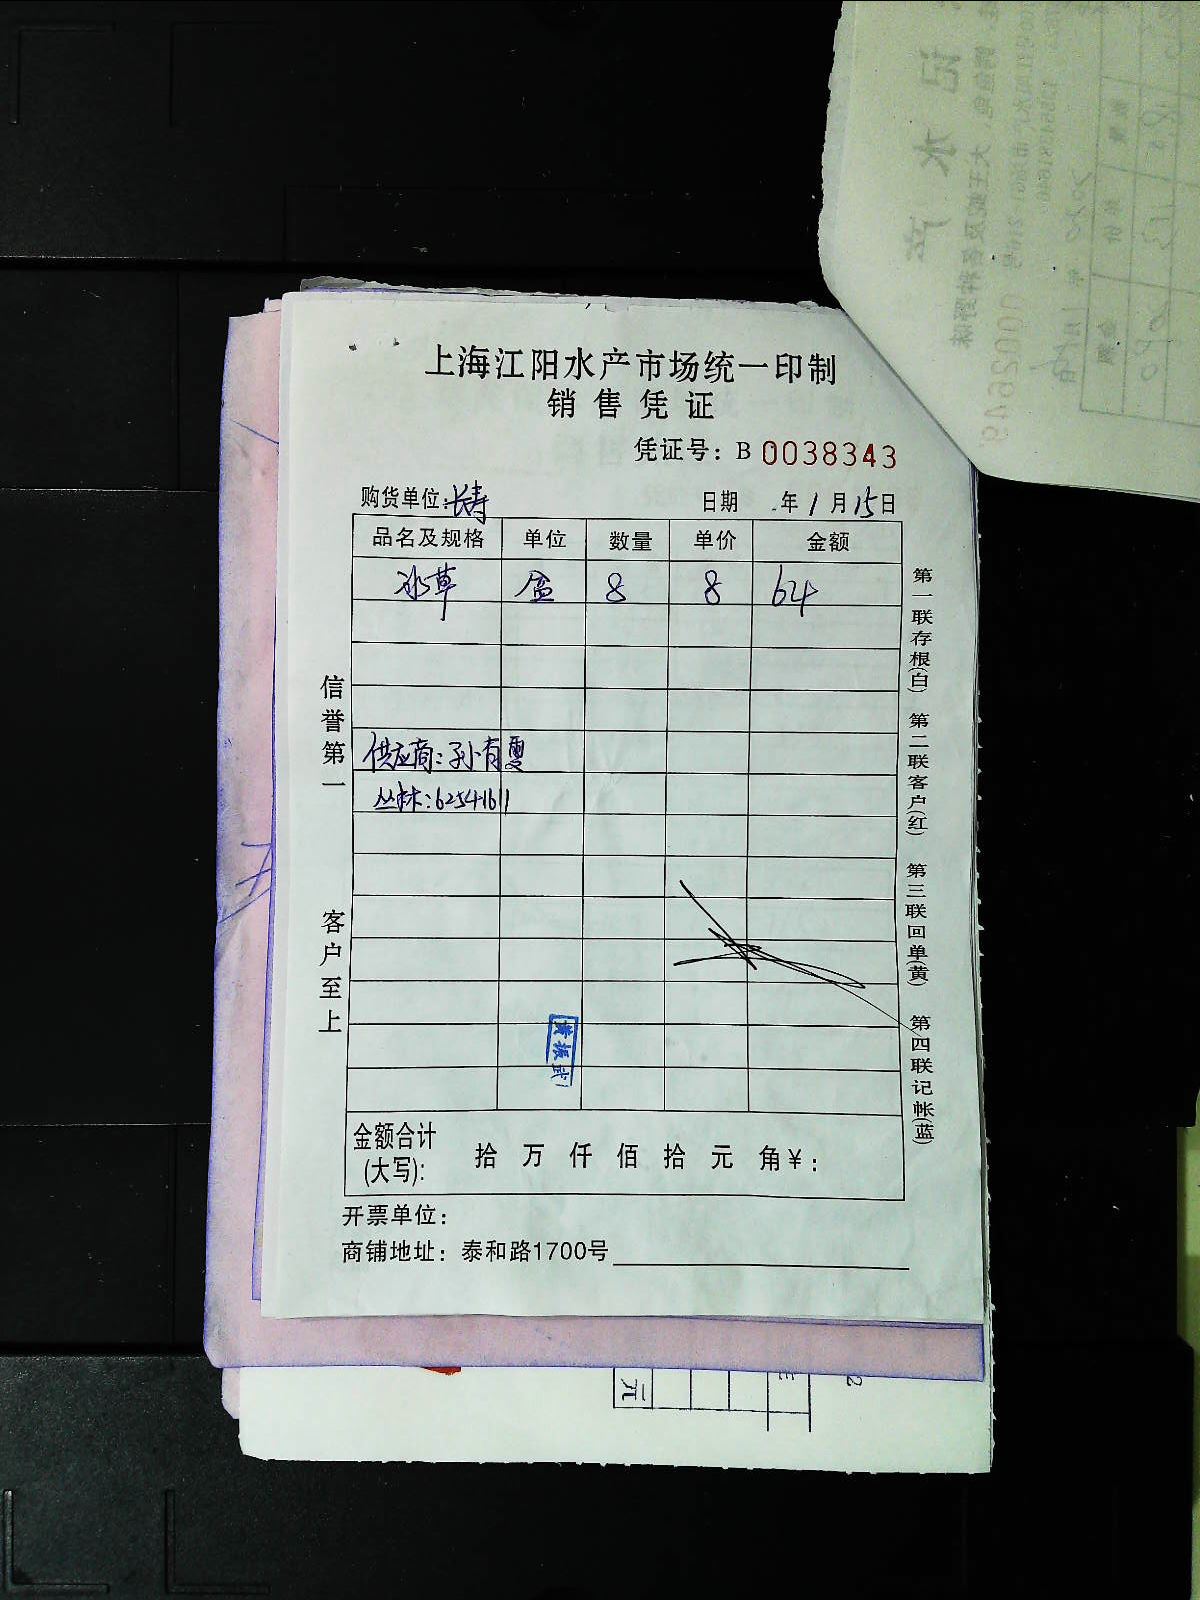 上海江阳水产市场统一印制
销售凭证
凭证号：B 0038343
购货单位：长寿 日期 年1月15日
品名及规格 单位 数量 单价 金额
冰草 盒 8 8 64
供应商：孙有
丛林：62541611
信誉第一
客户至上
第一联存根(白) 第二联客户(红) 第三联回单(黄) 第四联记帐(蓝)
黄振武
金额合计(大写)： 拾 万 仟 佰 拾 元 角 ¥：
开票单位：
商铺地址：泰和路1700号
元
0002649